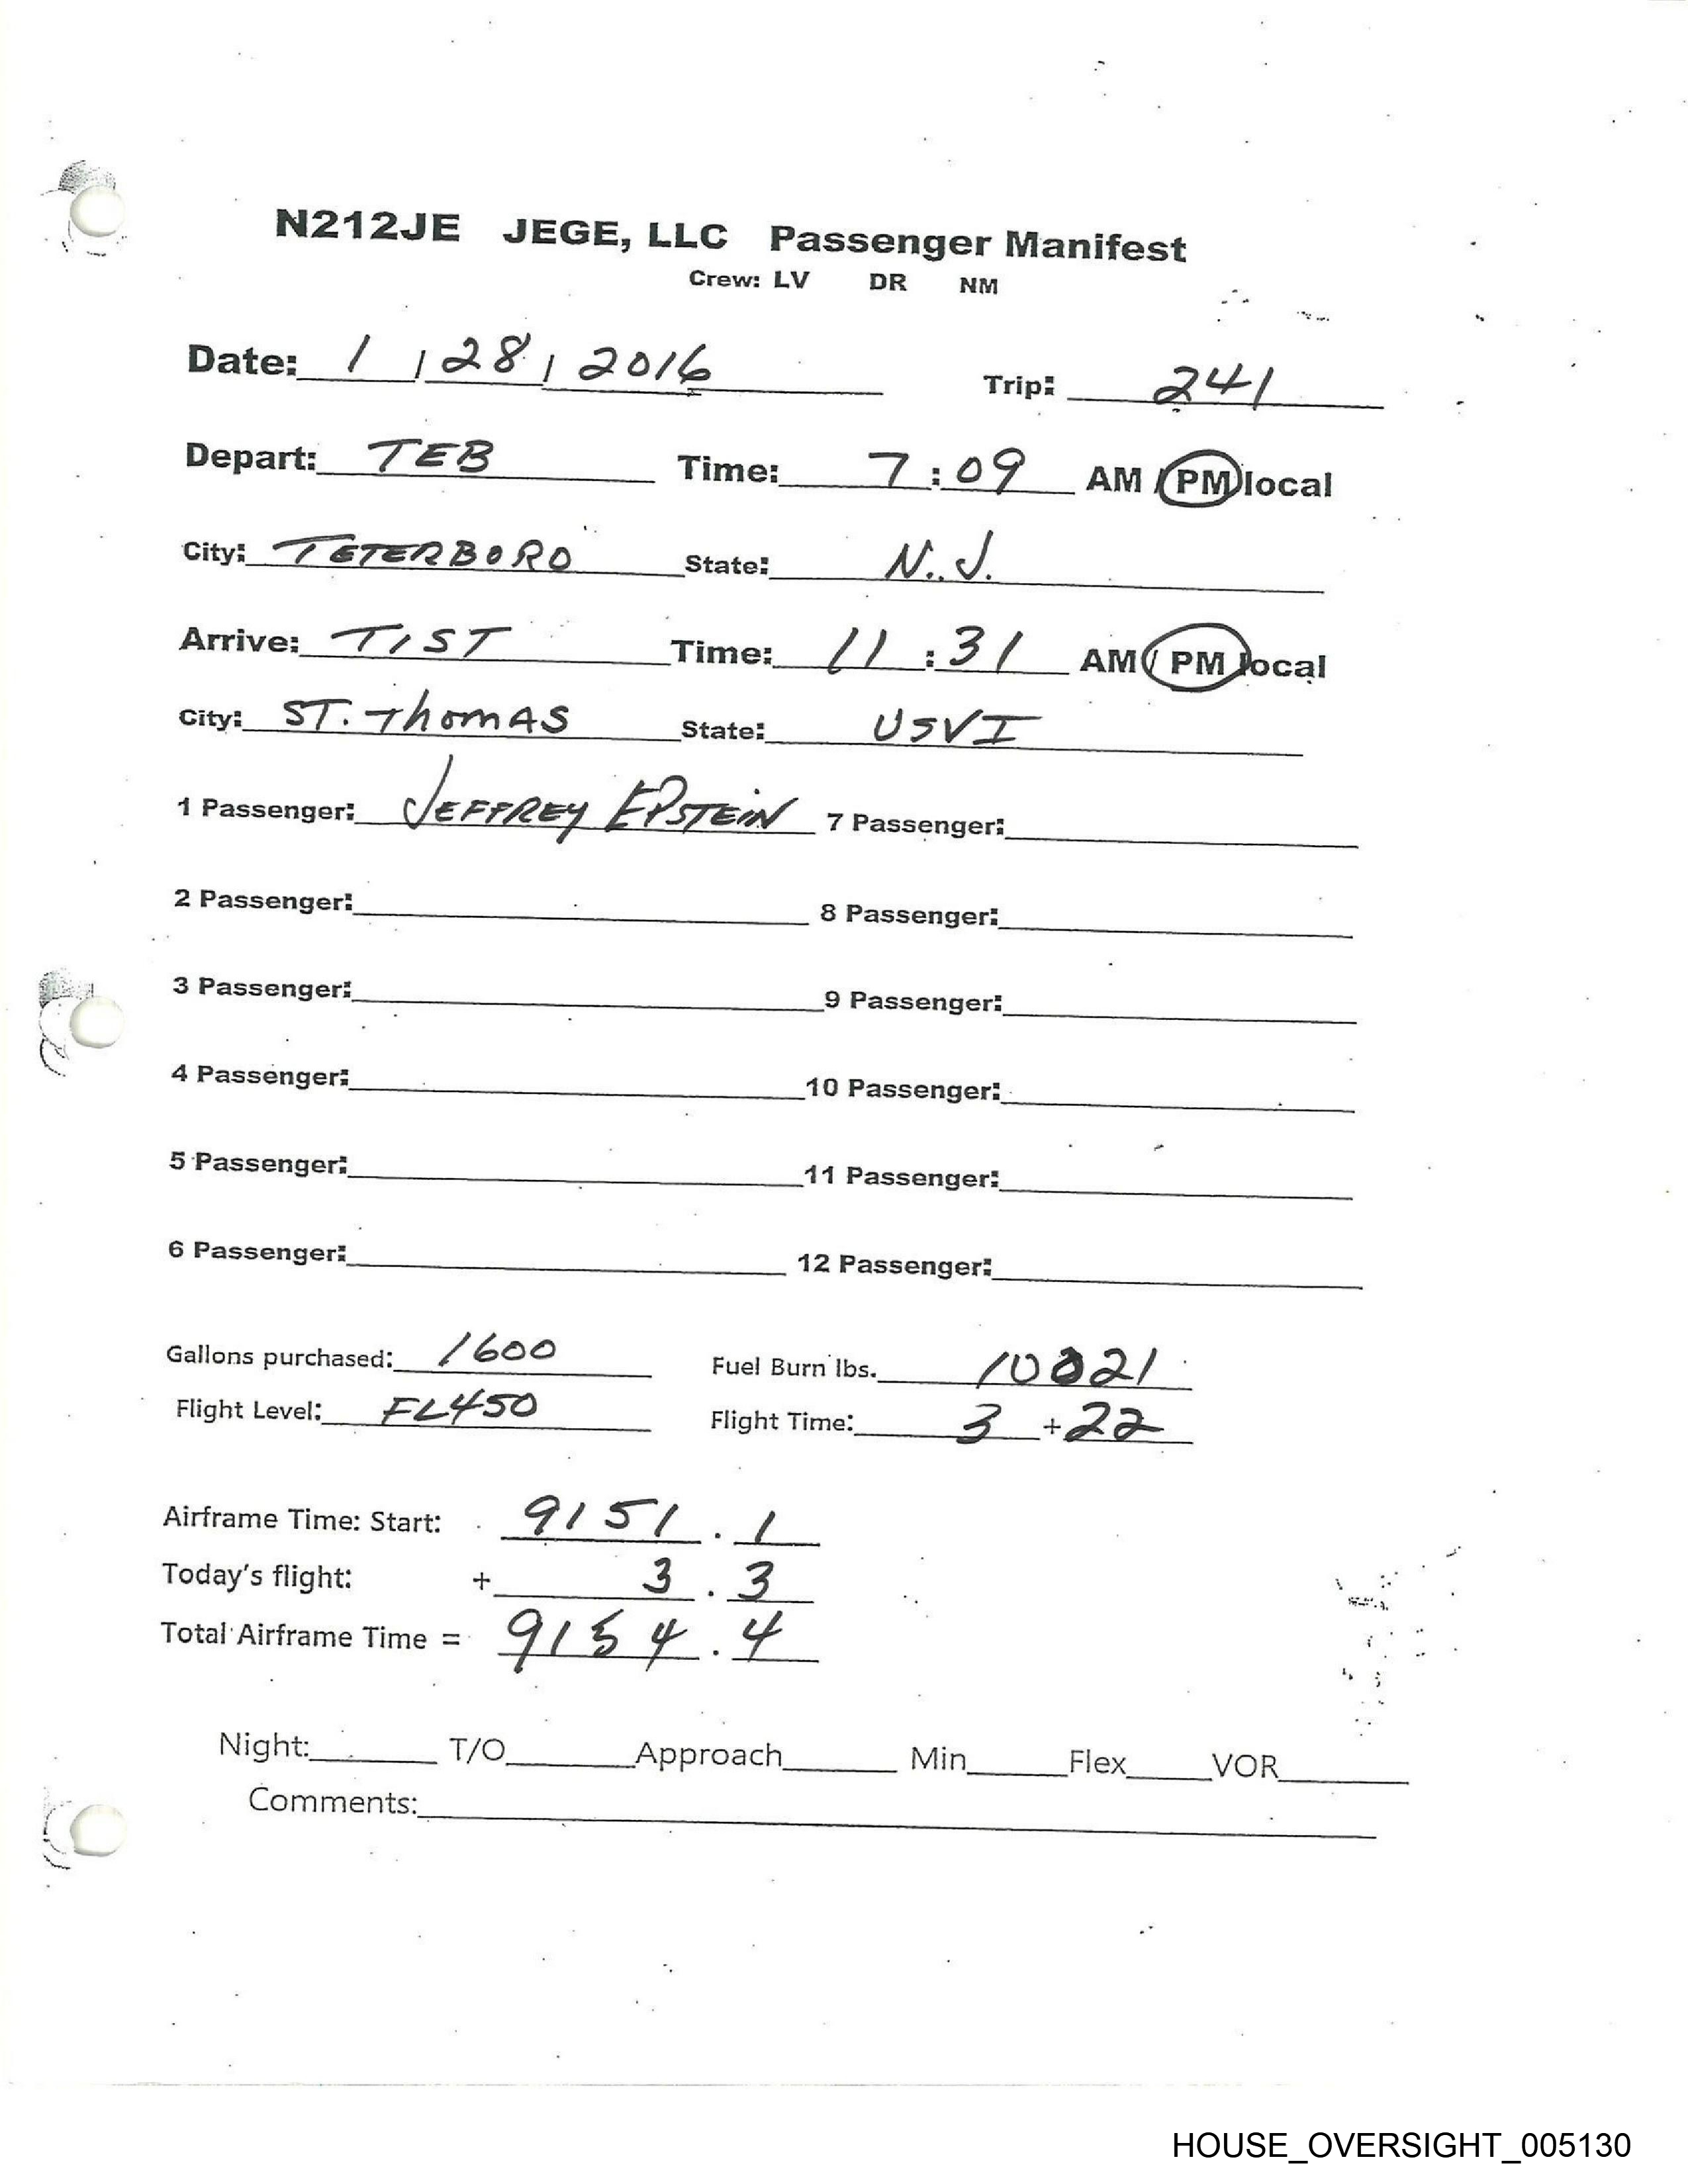 N212JE JEGE, LLC Passenger Manifest
Crew: LV DR NM
Date: 1 / 28 / 2016 Trip: 241
Depart: TEB Time: 7:09 AM / PM local
City: TETERBORO State: N.J.
Arrive: TIST Time: 11:31 AM / PM local
City: ST. Thomas State: USVI
1 Passenger: JEFFREY EPSTEIN 7 Passenger:
2 Passenger: 8 Passenger:
3 Passenger: 9 Passenger:
4 Passenger: 10 Passenger:
5 Passenger: 11 Passenger:
6 Passenger: 12 Passenger:
Gallons purchased: 1600 Fuel Burn lbs. 10021
Flight Level: FL450 Flight Time: 3 + 22
Airframe Time: Start: 9151.1
Today's flight: + 3.3
Total Airframe Time = 9154.4
Night: T/O Approach Min Flex VOR
Comments:
HOUSE_OVERSIGHT_005130